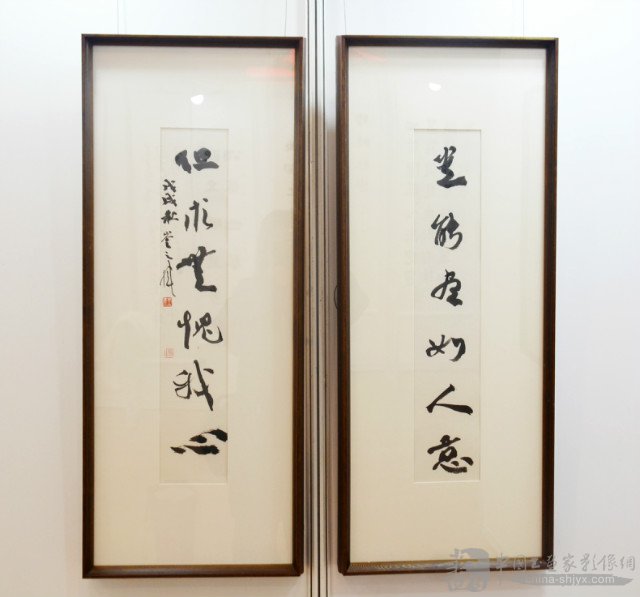 岂能尽如人意
但求無愧我心
戊戌秋
中国书画家影像網
china-shjyx.com